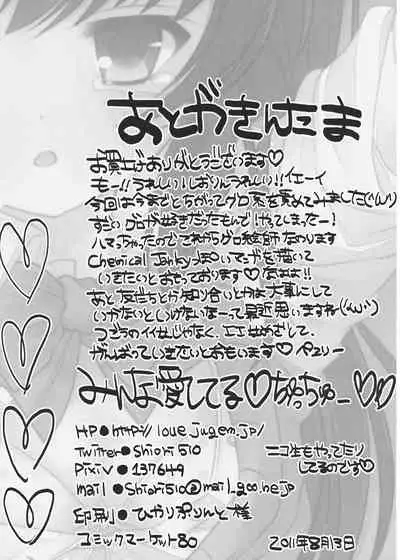 あとがきんたま
お買上げありがとうございます♡
もー!!うれしい!しおりんうれしい!!イエーイ
今回は今までとちがってグロ系を責めてみました
すごいグロが好きだったもんでやってしまったー!
ハマっちゃったのでこれからグロ絵師になります
Chemical Janky
いきたいとおもっております
あと友だちとか知り合いとかは大事にして
いかないといけないなーって最近思いますねー
がんばっていきたいとおもいます♡
みんな愛してる♡ちゅっちゅー♡♡
HP●http://loue.jugem.jp/
Twitter●Shiori510
Pixiv●137649
mail●Shiori510@mail.goo.ne.jp
ニコ生もやってたり
してるのです♡
印刷●ひかりぷりんと様
コミックマーケット80
2011年8月13日